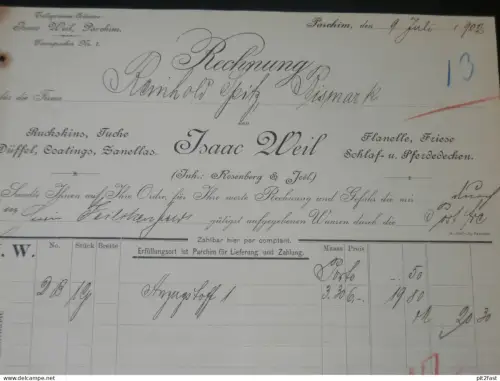 Telegramm-Adresse:
Isaac Weil, Parchim.
Fernsprecher No. 1.
Parchim, den 9 Juli 1902
Rechnung
13
für die Firma Reinhold Seitz, Bismark
von
Buckskins, Tuche
Düffel, Coatings, Zanellas.
Isaac Weil
(Inh.: Rosenberg & Joël)
Flanelle, Friese
Schlaf- u. Pferdedecken.
Sandte Ihnen auf Ihr Order, für Ihre werte Rechnung und Gefahr die mir
gütigst aufgegebenen Waaren durch die Post
Zahlbar hier per comptant.
Erfüllungsort ist Parchim für Lieferung und Zahlung.
I. W. No. Stück Breite Maass Preis
Porto 50
2 B Anzugstoff 1 3.30 6.- 19 80
M 20 30
pit2fast - www.delcampe.net